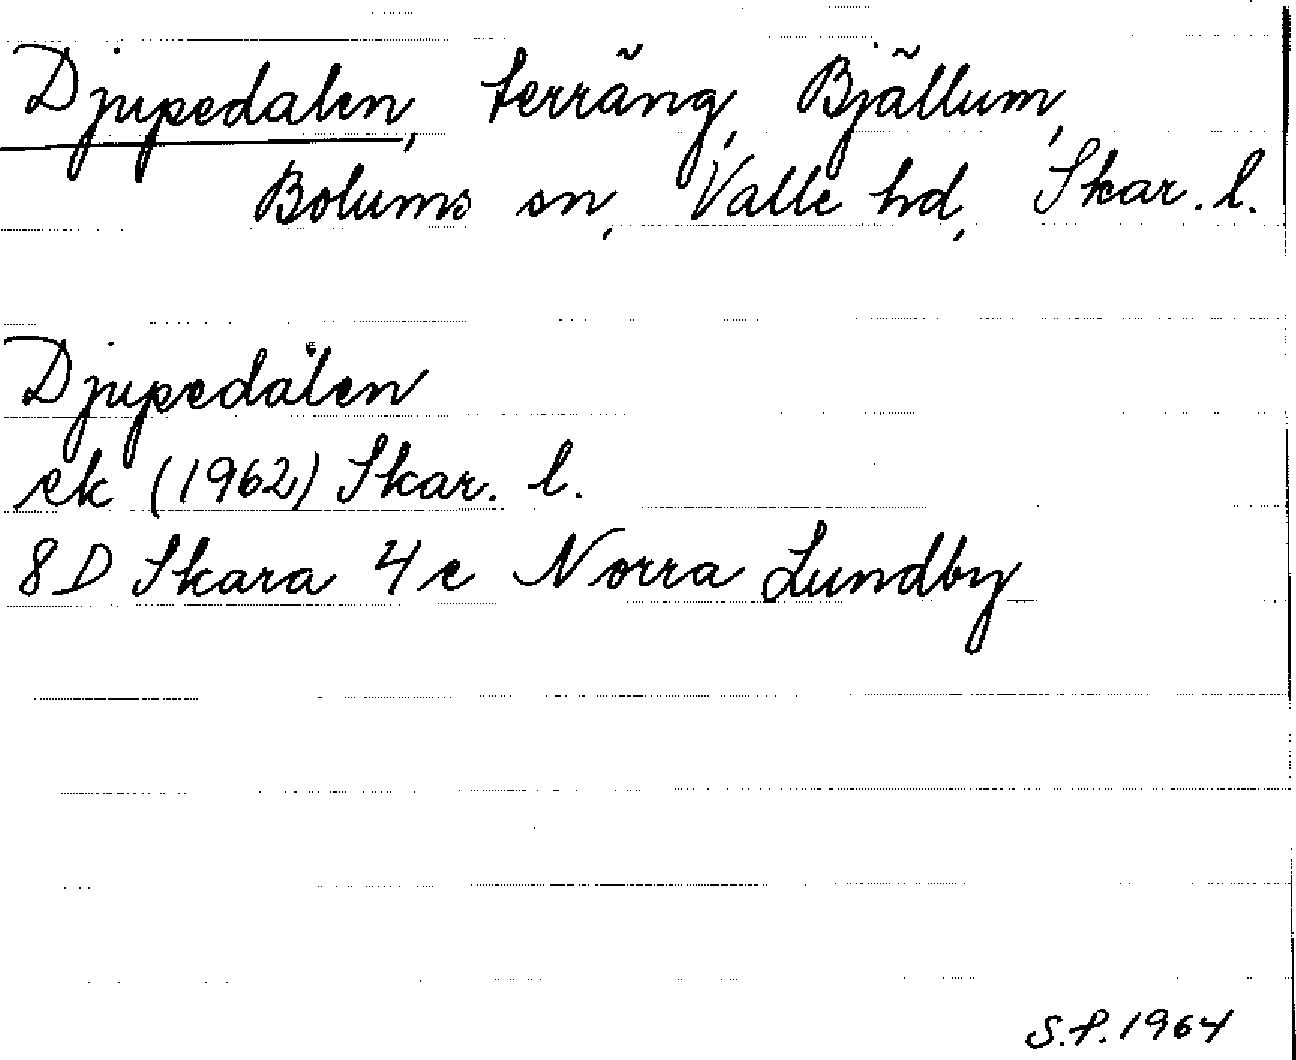 Djupedalen, terräng, Bjällum,
Bolums sn, Valle hd, Skar. l.
Djupedalen
ek (1962) Skar. l.
8D Skara 4e Norra Lundby
S.P. 1964